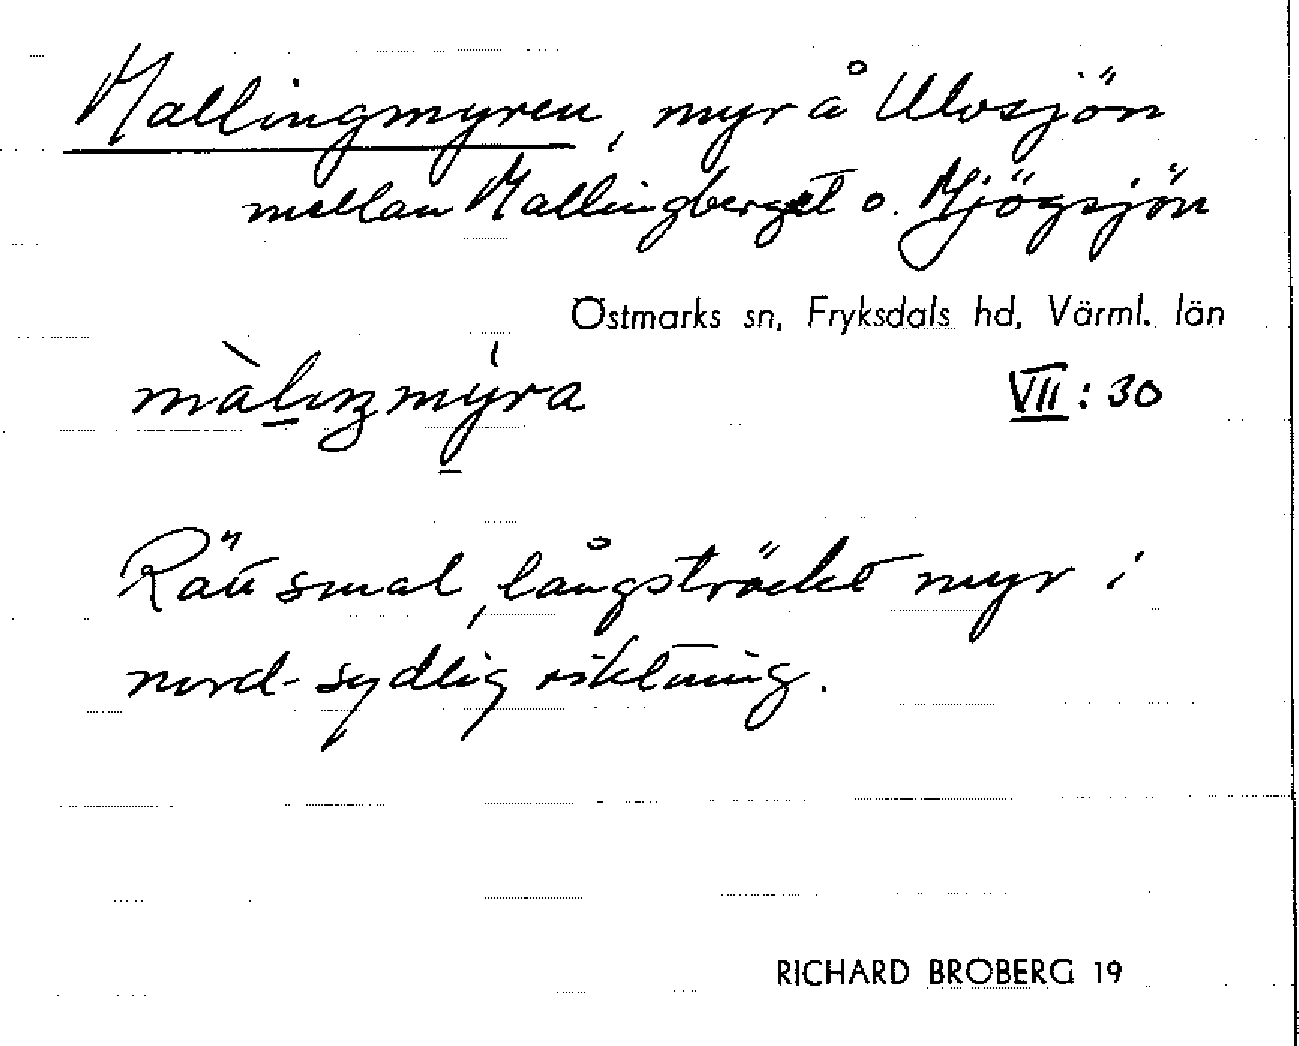 Mallingmyren, myr å Ulvsjön
mellan Mallingberget o. Mjögsjön
Östmarks sn, Fryksdals hd, Värml. län
màlıŋmýra
VII: 30
Rätt smal, långsträckt myr i
nord-sydlig riktning.
RICHARD BROBERG 19